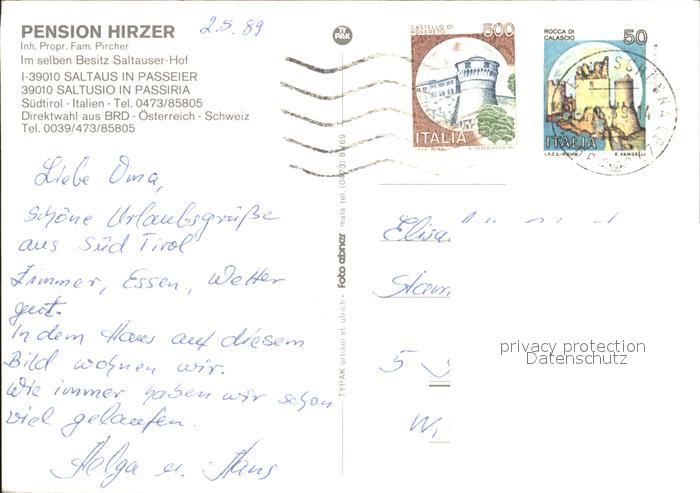 PENSION HIRZER
2.5.89
Inh. Propr. Fam. Pircher
Im selben Besitz Saltauser-Hof
I-39010 SALTAUS IN PASSEIER
39010 SALTUSIO IN PASSIRIA
Südtirol - Italien - Tel. 0473/85805
Direktwahl aus BRD - Österreich - Schweiz
Tel. 0039/473/85805
Liebe Oma,
schöne Urlaubsgrüße
aus Süd Tirol
Zimmer, Essen, Wetter
gut.
In dem Haus auf diesem
Bild wohnen wir.
Wie immer haben wir schon
viel gelaufen.
Helga u. Hans
TYPAK ortisei st. ulrich - Foto ebner mals tel. (0473)
TY
PAK
CASTELLO DI
ROVERETO
500
ITALIA
ROCCA DI
CALASCIO
50
ITALIA
I.P.Z.S.-ROMA E. VANGELLI
SCHENNA
Elisa
5
privacy protection
Datenschutz